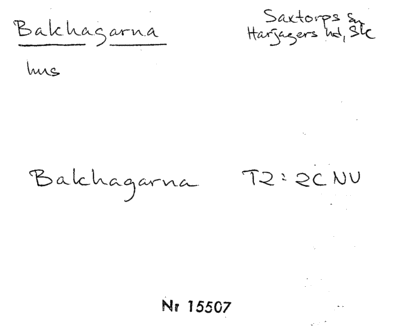 Bakhagarna
Saxtorps sn
Harjagers hd, Sk
hus
Bakhagarna T2: 2C NV
Nr 15507